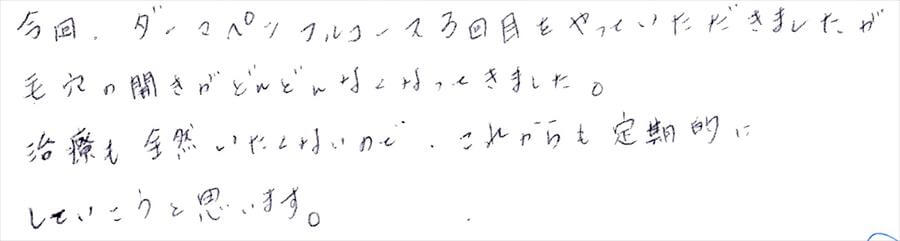 今回、ダーマペンフルコース3回目をやっていただきましたが
毛穴の開きがどんどんなくなってきました。
治療も全然いたくないので、これからも定期的に
していこうと思います。